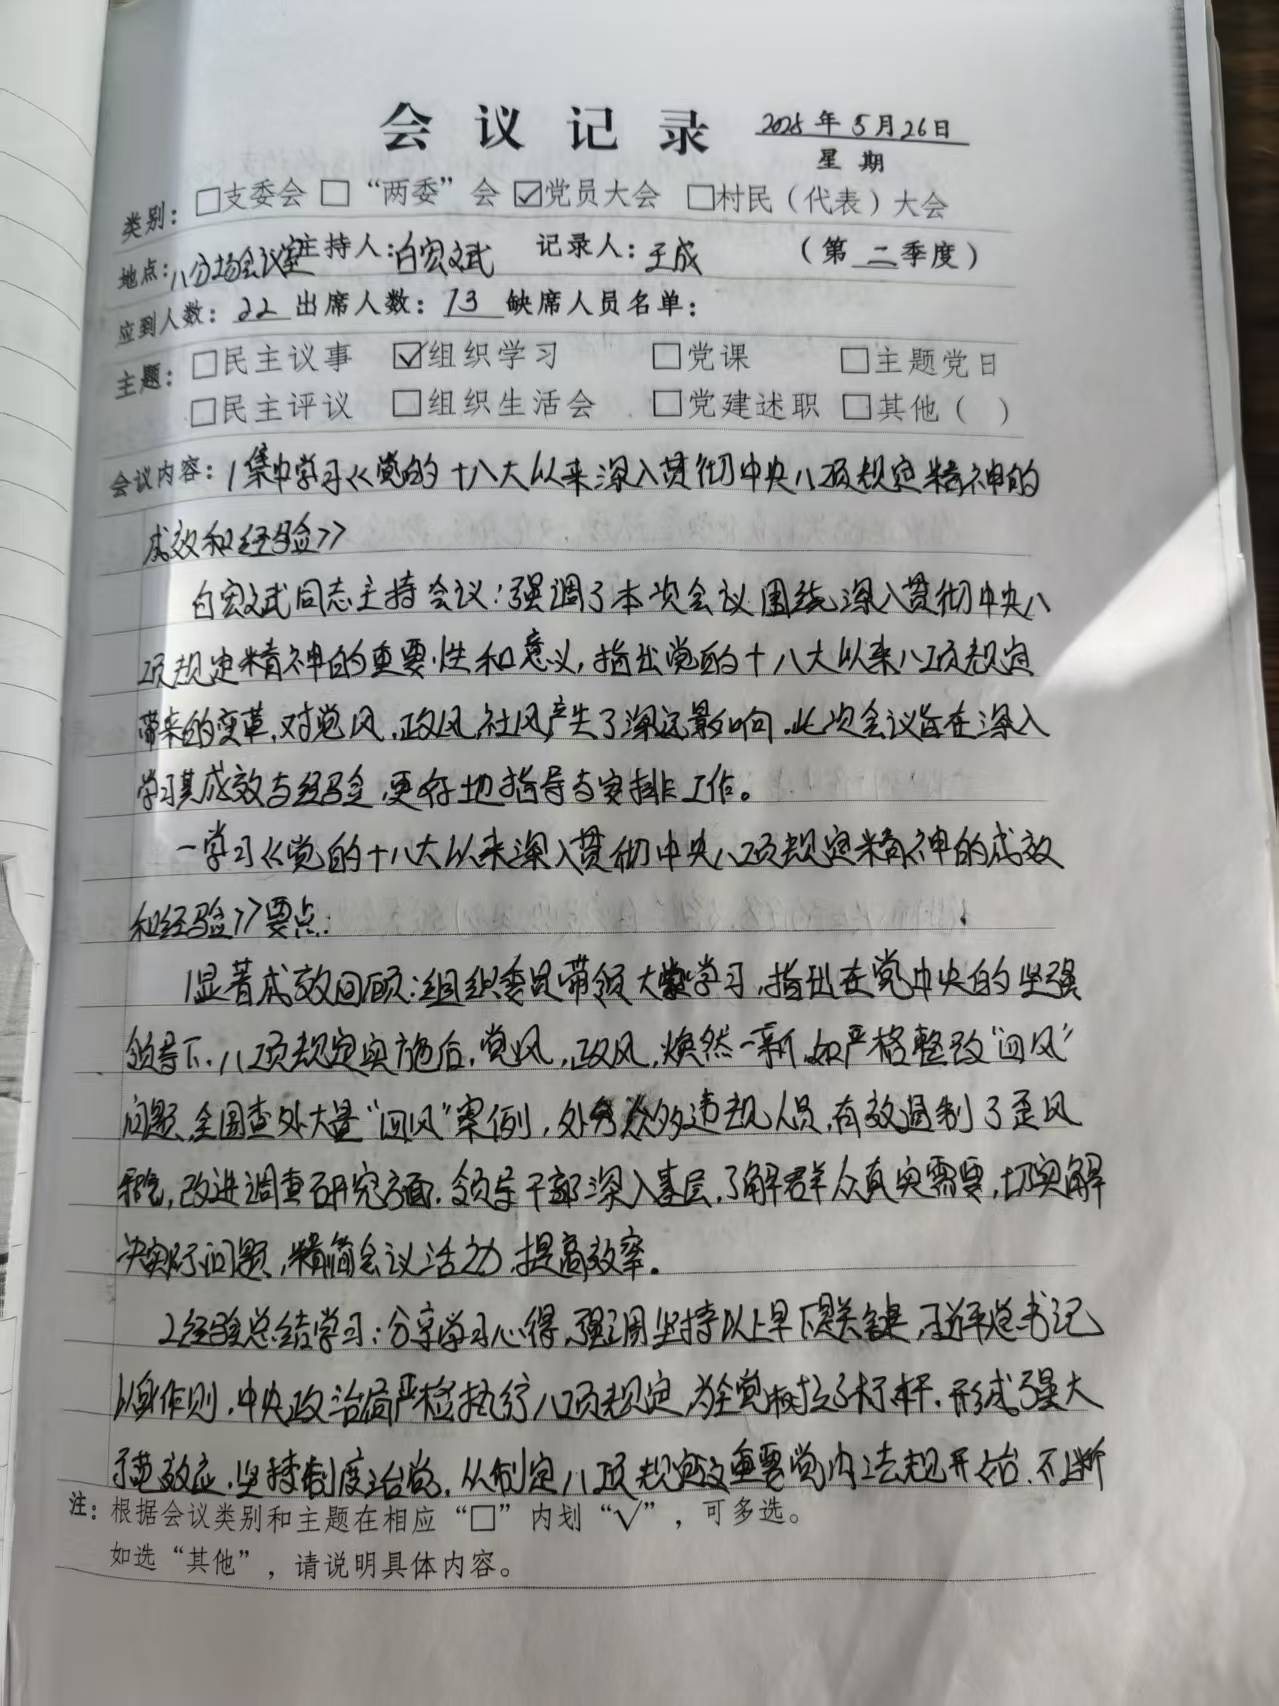 会议记录 2025年5月26日
星期
类别：□支委会 □“两委”会 ☑党员大会 □村民（代表）大会
地点：八分场会议室 主持人：白宏斌 记录人：王成 （第二季度）
应到人数：22 出席人数：13 缺席人员名单：
主题：□民主议事 ☑组织学习 □党课 □主题党日
□民主评议 □组织生活会 □党建述职 □其他（ ）
会议内容：1集中学习《党的十八大以来深入贯彻中央八项规定精神的
成效和经验》
白宏斌同志主持会议：强调了本次会议围绕深入贯彻中央八
项规定精神的重要性和意义，指出党的十八大以来八项规定
带来的变革，对党风，政风，社风产生了深远影响。此次会议旨在深入
学习其成效与经验，更好地指导与安排工作。
一学习《党的十八大以来深入贯彻中央八项规定精神的成效
和经验》要点：
1显著成效回顾：组织委员带领大家学习，指出在党中央的坚强
领导下，八项规定实施后，党风，政风，焕然一新，如严格整改“四风”
问题、全国查处大量“四风”案例，处分众多违规人员，有效遏制了歪风
邪气，改进调查研究方面，领导干部深入基层，了解群众真实需要，切实解
决实际问题，精简会议活动，提高效率。
2经验总结学习：分享学习心得，强调坚持以上率下是关键，习近平总书记
以身作则，中央政治局严格执行八项规定，为全党树立了标杆，形成了强大
示范效应，坚持制度治党，从制定八项规定这重要党内法规开始，不断
注：根据会议类别和主题在相应“□”内划“√”，可多选。
如选“其他”，请说明具体内容。